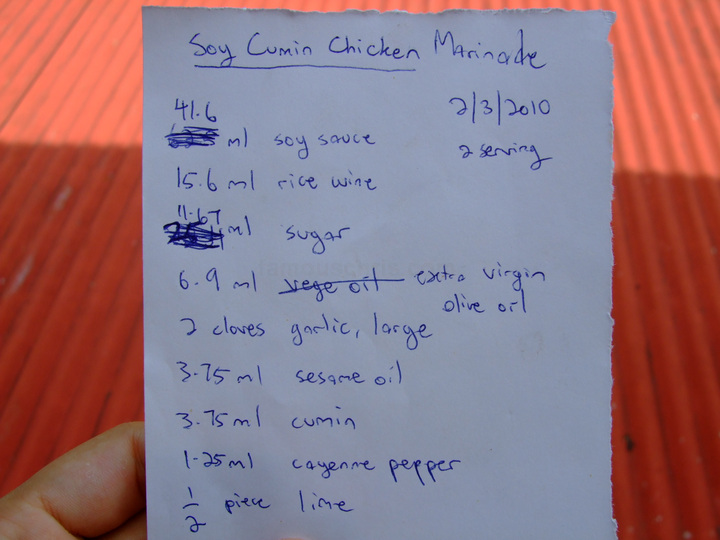 Soy Cumin Chicken Marinade
2/3/2010
2 serving
41.6 ml soy sauce
15.6 ml rice wine
11.67 ml sugar
6.9 ml vege oil extra virgin
olive oil
2 cloves garlic, large
3.75 ml sesame oil
3.75 ml cumin
1.25 ml cayenne pepper
1/2 piece lime